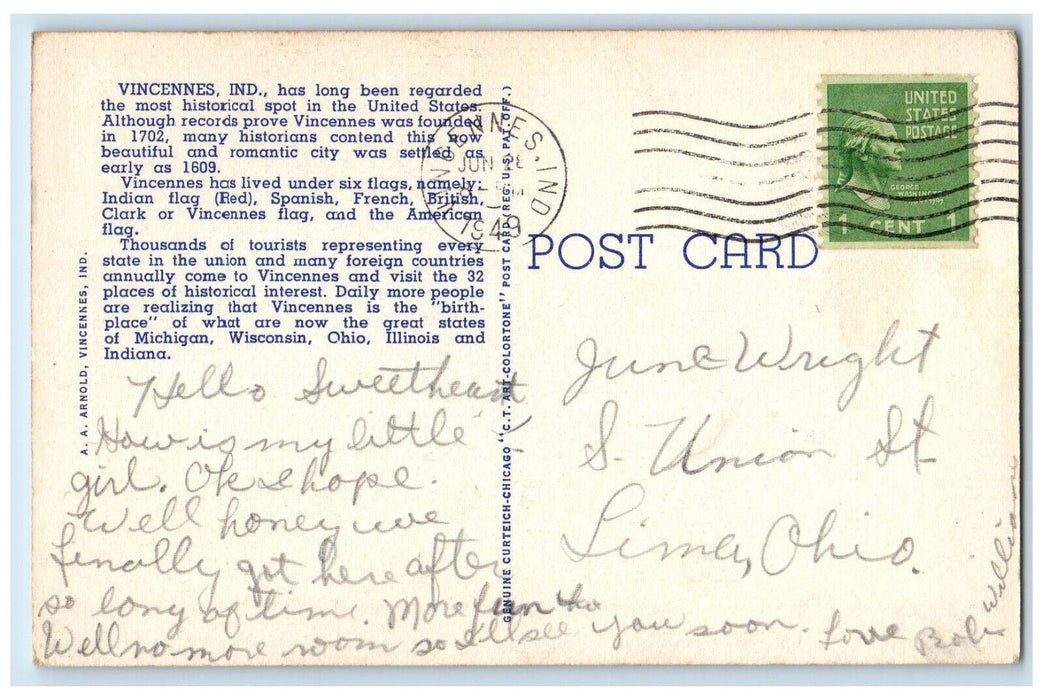 VINCENNES, IND., has long been regarded
the most historical spot in the United States.
Although records prove Vincennes was founded
in 1702, many historians contend this now
beautiful and romantic city was settled as
early as 1609.
Vincennes has lived under six flags, namely:
Indian flag (Red), Spanish, French, British,
Clark or Vincennes flag, and the American
flag.
Thousands of tourists representing every
state in the union and many foreign countries
annually come to Vincennes and visit the 32
places of historical interest. Daily more people
are realizing that Vincennes is the "birth-
place" of what are now the great states
of Michigan, Wisconsin, Ohio, Illinois and
Indiana.
A. A. ARNOLD, VINCENNES, IND.
Hello Sweetheart
How is my little
girl. Ok I hope.
Well honey we
finally got here after
so long of time. More fun
Well no more room so I'll see you soon. Love Bob
Williams
GENUINE CURTEICH-CHICAGO "C.T. ART-COLORTONE" POST CARD (REG. U.S. PAT. OFF.)
VINCENNES, IND
JUN
1949
POST CARD
UNITED
STATES
POSTAGE
GEORGE
WASHINGTON
1 CENT 1
June Wright
S. Union St
Lima, Ohio.